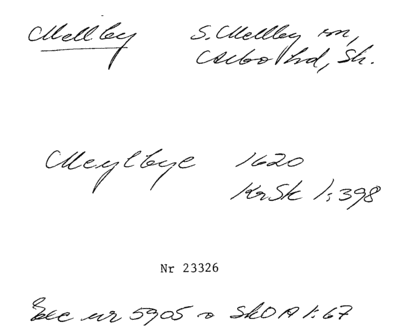 Mellby S. Mellby sn,
Asbo hd, Sk.
Meylbye 1620
KrSk 1:398
Nr 23326
nr 5905 o SkOA 1:67